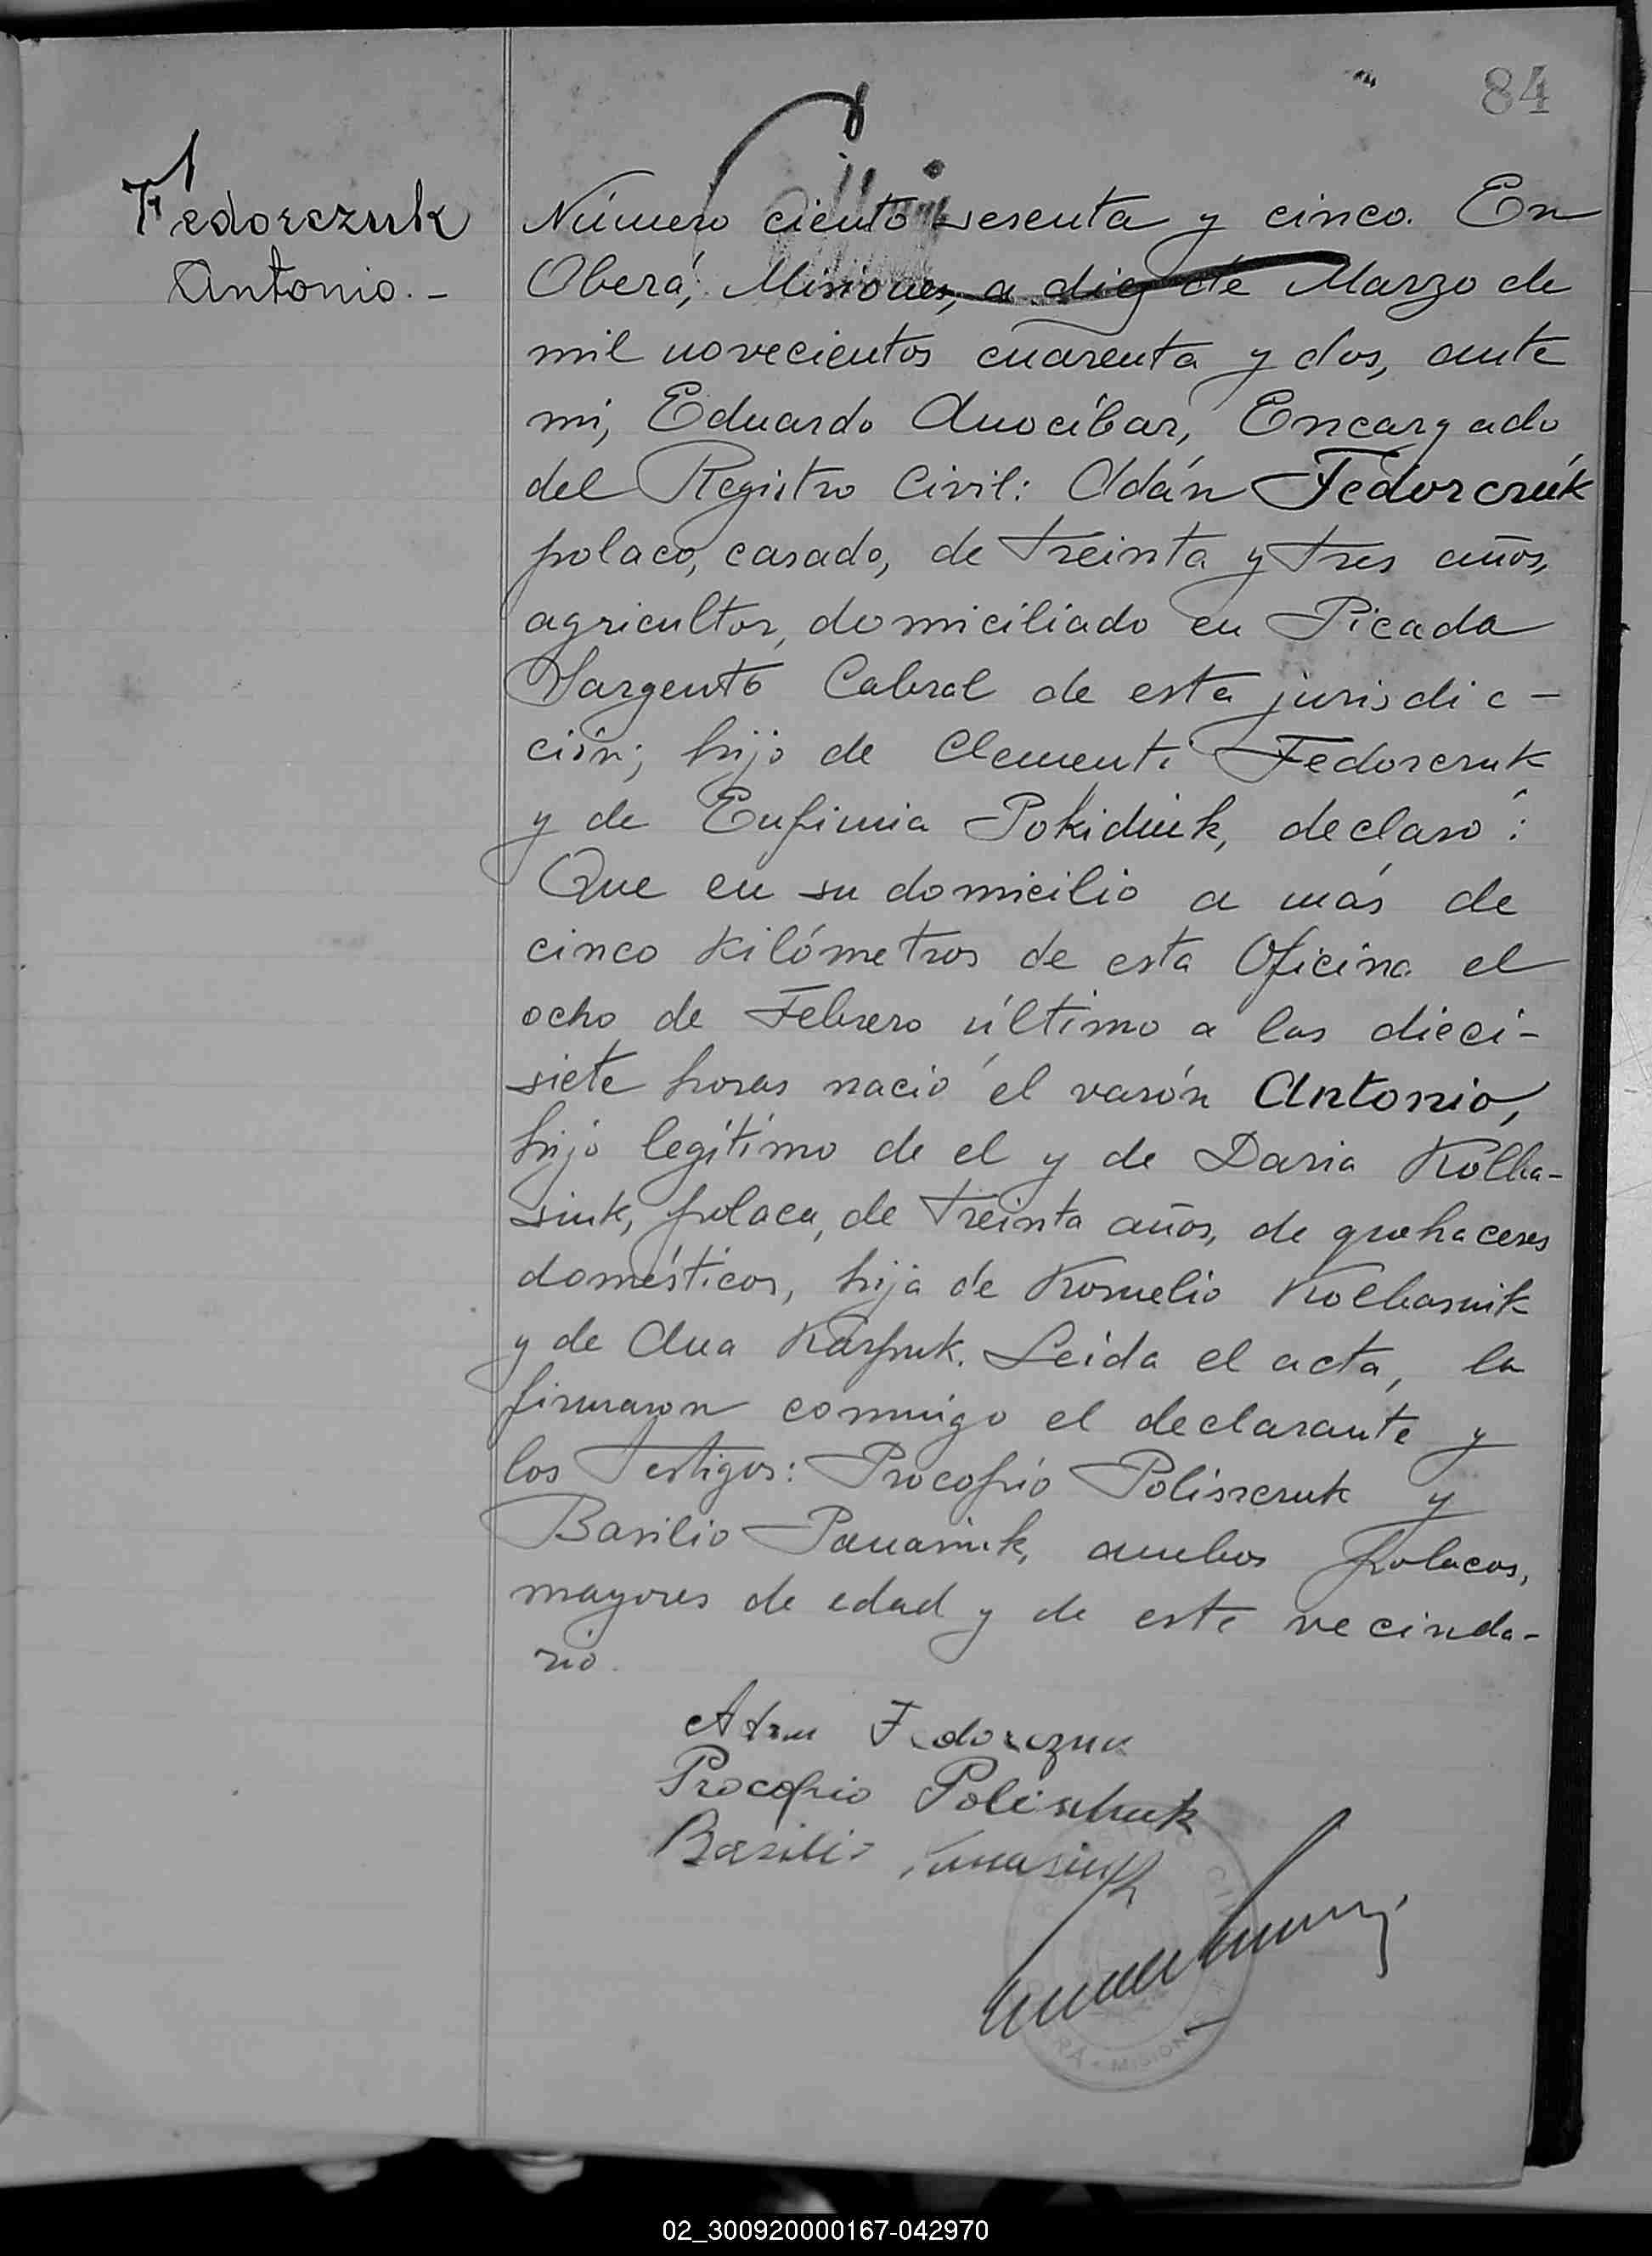 84
Fedorczuk
Antonio.-
Número ciento sesenta y cinco. En
Oberá, Misiones, a diez de Marzo de
mil novecientos cuarenta y dos, ante
mi, Eduardo Anocibar, Encargado
del Registro Civil: Adán Fedorczuk
polaco, casado, de treinta y tres años,
agricultor, domiciliado en Picada
Sargento Cabral de esta jurisdic-
ción; hijo de Clementi Fedorczuk
y de Eufimia Pokidiuk, declaró:
Que en su domicilio a más de
cinco kilómetros de esta Oficina el
ocho de Febrero último a las dieci-
siete horas nació el varón Antonio,
hijo legítimo de el y de Daria Kolba-
siuk, polaca, de treinta años, de quehaceres
domésticos, hija de Kornelio Kolbasiuk
y de Ana Karpuk. Leida el acta, la
firmaron conmigo el declarante y
los Testigos: Procopio Poliszczuk y
Basilio Panasiuk, ambos polacos,
mayores de edad y de este vecinda-
rio.
Fedorczuk
Procopio Polischuk
Basilio Panasiuk
MISIONES
02_300920000167-042970